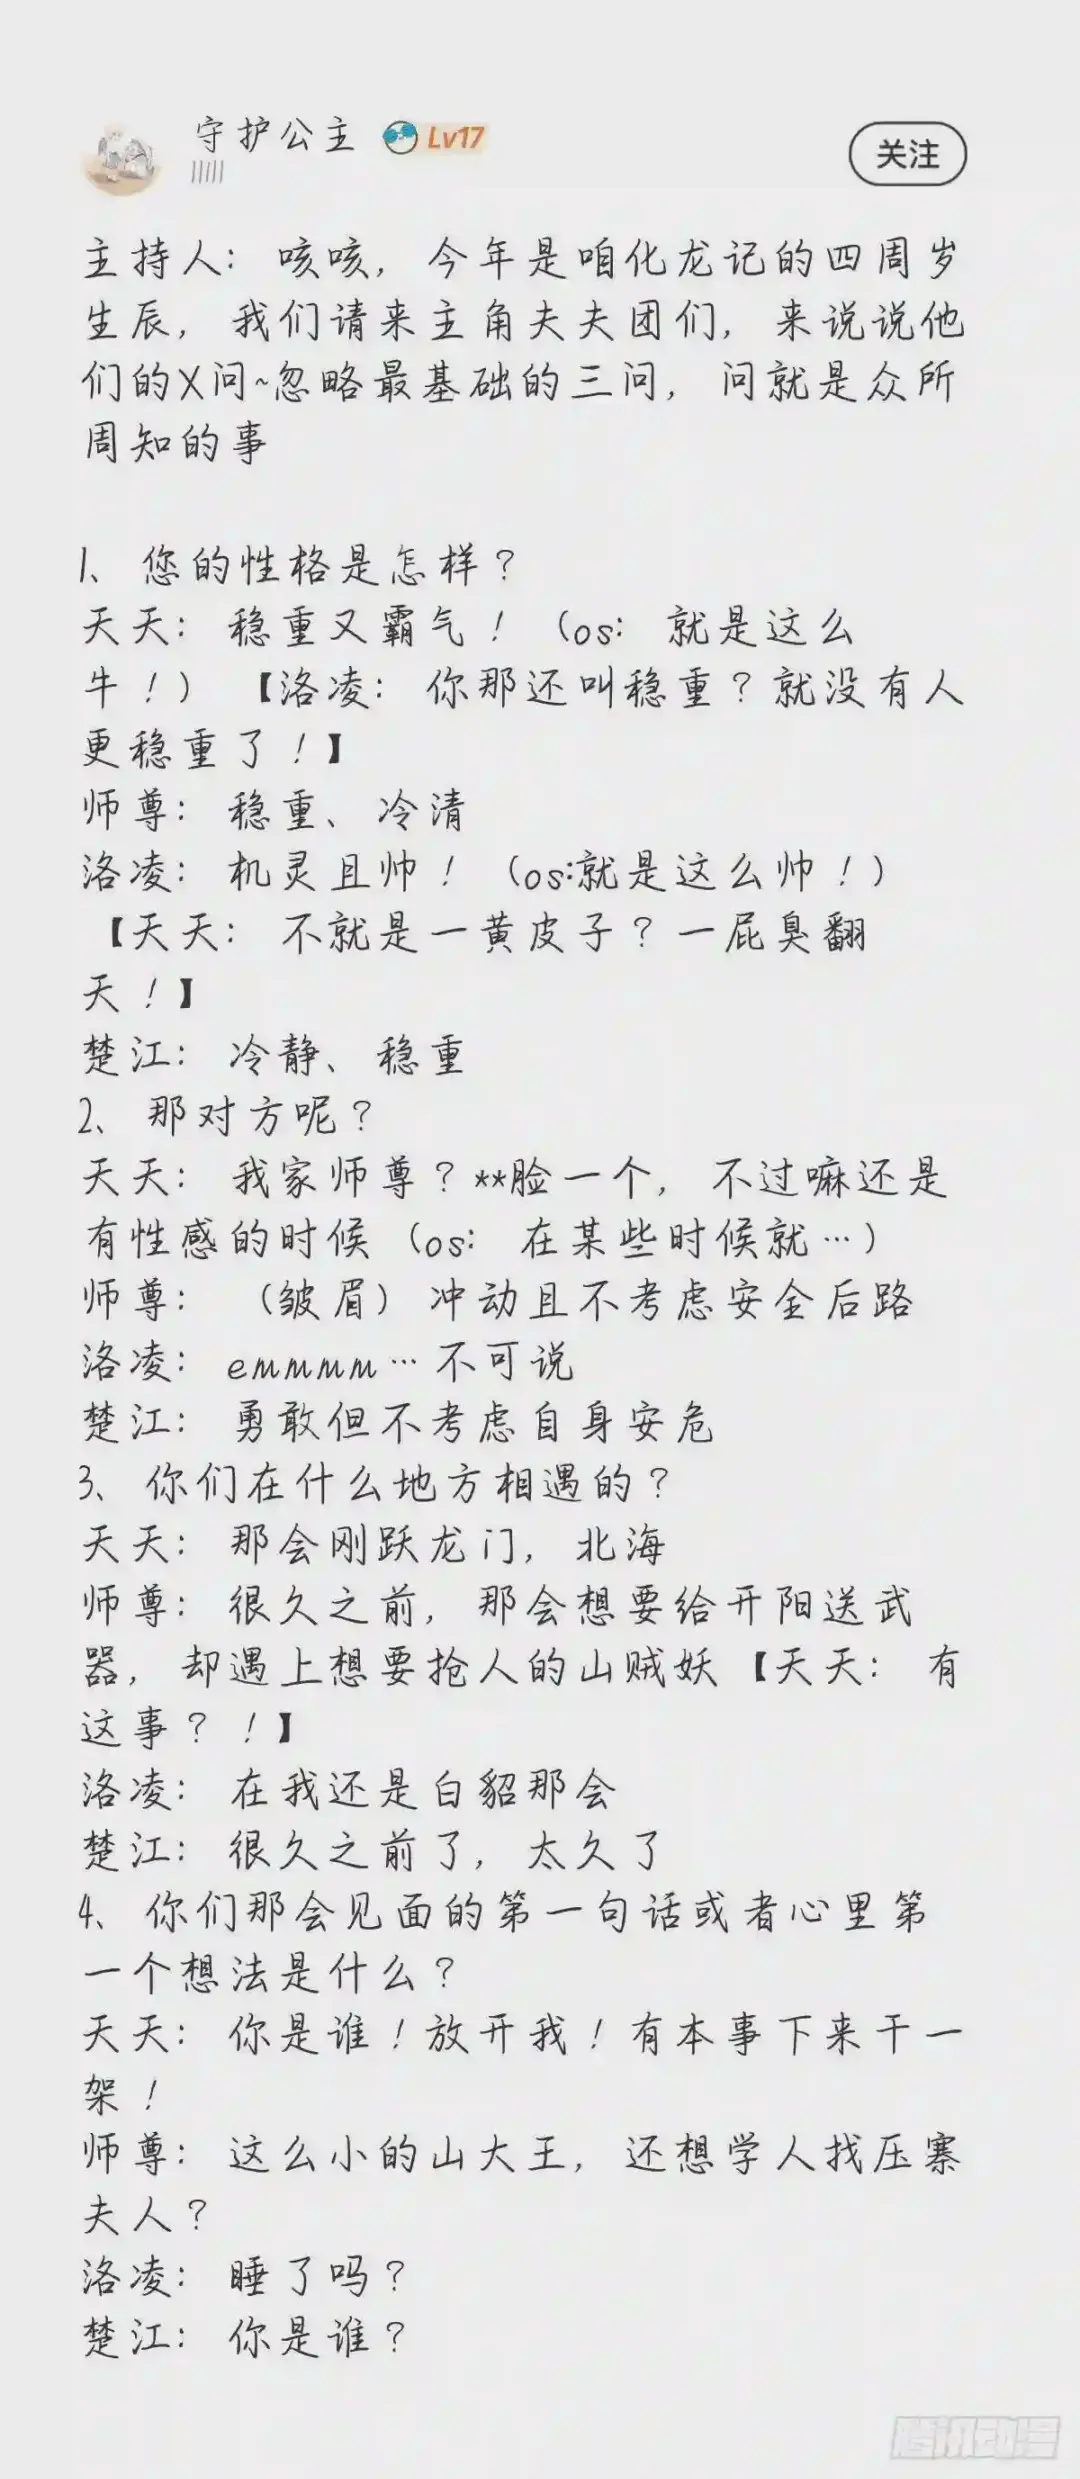 守护公主 Lv17
关注
主持人：咳咳，今年是咱化龙记的四周岁
生辰，我们请来主角夫夫团们，来说说他
们的X问~忽略最基础的三问，问就是众所
周知的事
1、您的性格是怎样？
天天：稳重又霸气！（os：就是这么
牛！）【洛凌：你那还叫稳重？就没有人
更稳重了！】
师尊：稳重、冷清
洛凌：机灵且帅！（os:就是这么帅！）
【天天：不就是一黄皮子？一屁臭翻
天！】
楚江：冷静、稳重
2、那对方呢？
天天：我家师尊？**脸一个，不过嘛还是
有性感的时候（os：在某些时候就…）
师尊：（皱眉）冲动且不考虑安全后路
洛凌：emmmm…不可说
楚江：勇敢但不考虑自身安危
3、你们在什么地方相遇的？
天天：那会刚跃龙门，北海
师尊：很久之前，那会想要给开阳送武
器，却遇上想要抢人的山贼妖【天天：有
这事？！】
洛凌：在我还是白貂那会
楚江：很久之前了，太久了
4、你们那会见面的第一句话或者心里第
一个想法是什么？
天天：你是谁！放开我！有本事下来干一
架！
师尊：这么小的山大王，还想学人找压寨
夫人？
洛凌：睡了吗？
楚江：你是谁？
腾讯动漫